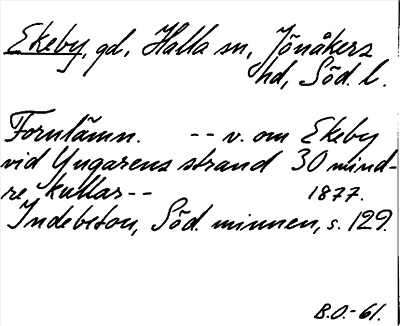 Ekeby, gd, Halla sn, Jönåkers
hd, Söd. l.
Fornlämn. -- v. om Ekeby
vid Yngarens strand 30 mind-
re kullar--
1877.
Indebetou, Söd. minnen, s. 129.
B.O.-61.